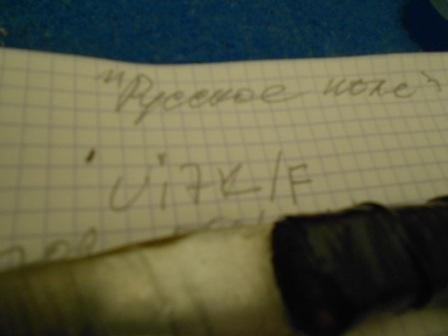 "Русское поле"
Ui7K/F